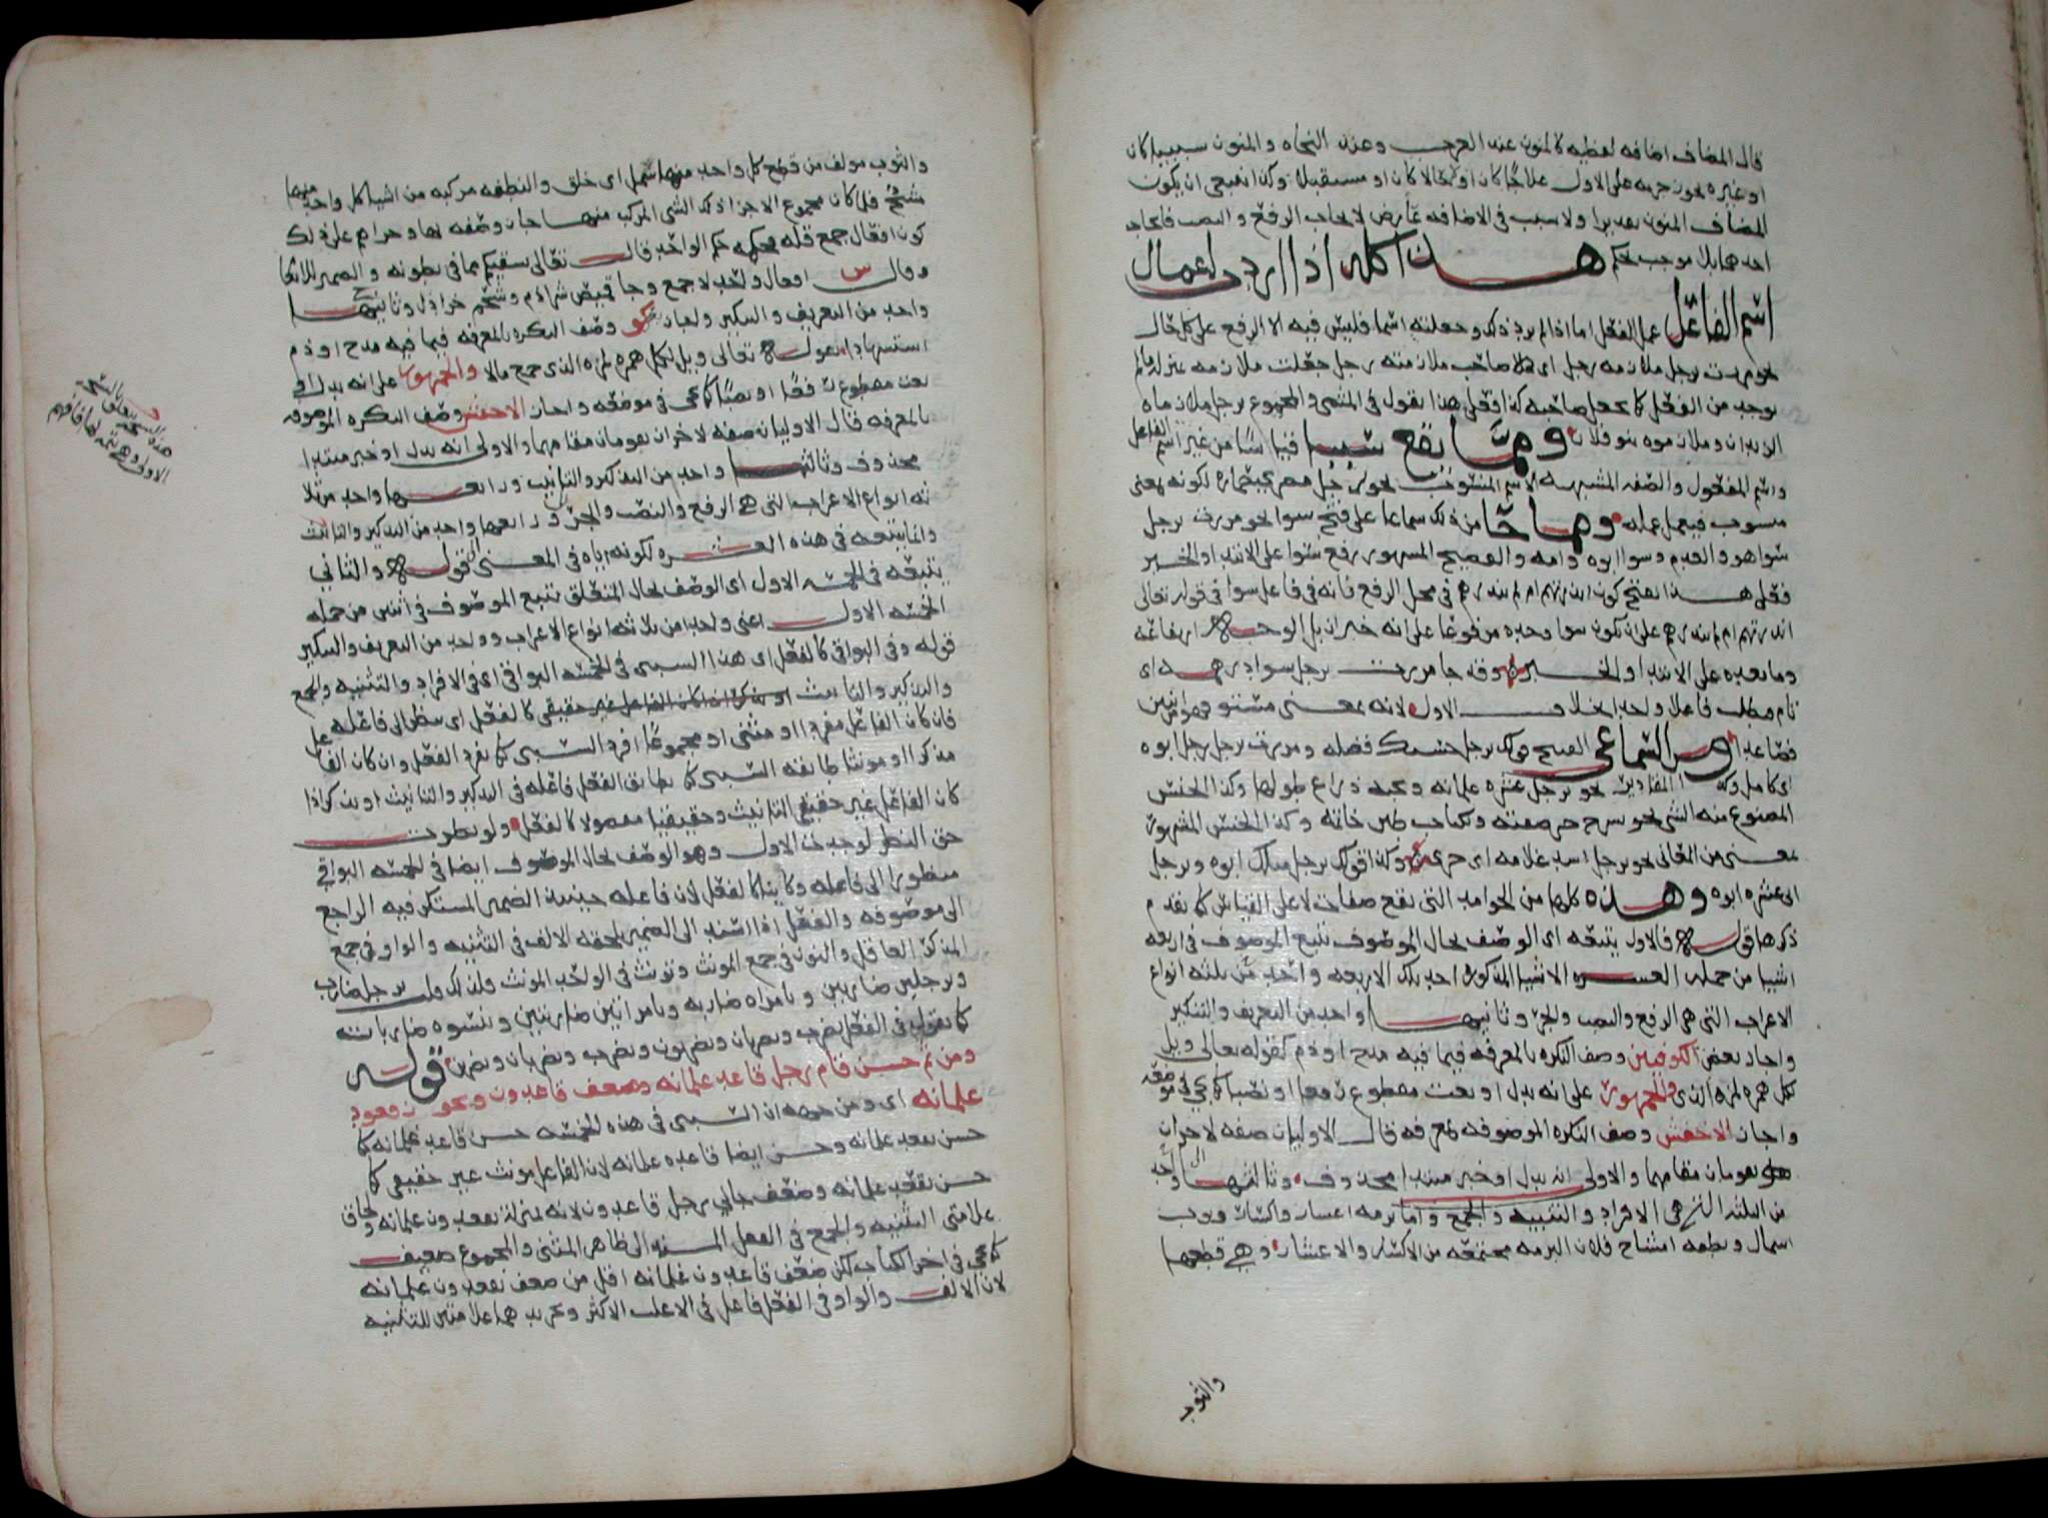 قال المضاف اضافه لفظيه كالمنون عند العرب وعند النحاه والمنون سببيا كان
او غيره يجوز جريه على الاول علاجا كان او لا حالا كان او مستقبلا وكذا ينبغي ان يكون
المضاف المنون تقديرا ولا سبب في الاضافه عارض لايجاب الرفع والنصب فايجاب
احدهما بلا موجب تحكم هـــذا كله اذا اريد اعمال
اسم الفاعل عمل الفعل اما اذا لم يرد ذلك وجعلته اسما فليس فيه الا الرفع على كل حال
نحو مررت برجل ملازمه رجل اى صاحب ملازمته رجل جعلت ملازمه بمنزله ما لم
يوجد من الفعل كما تجعل صاحبه كذا فعل هذا تقول في المثنى والمجموع برجل ملازماه
الزيدان وملازموه بنو فلان ومما يقع سببيا قياسا من غير اسم الفاعل
واسم المفعول والصفه المشبهه الاسم المنسوب نحو برجل مصري حماره لكونه بمعنى
منسوب فيعمل عمله ومما جا من ذلك سماعا على قبح سوا نحو مررت برجل
سوا هو والعدم وسوا ابوه وامه والفصيح المشهور رفع سوا على الابتدا والخبر
فعلى هذا يقبح كون اانذرتهم ام لم تنذرهم في محل الرفع بانه في فاعل سوا في قوله تعالى
اانذرتهم ام لم تنذرهم على ان يكون سوا وحده مرفوعا على انه خبر ان بل الوجه ارتفاعه
وما بعده على الابتدا والخبر وقد جا مررت برجل سوا درهمه اى
تام فطلب فاعلا واحدا بخلاف الاول لانه بمعنى مستو وهو من اثنين
فصاعدا ومن السماعي القبيح قولك برجل حسبك فضله ومررت برجل رجل ابوه
اى كامل وكذا المقادير نحو برجل عشره غلمانه وبحيه ذراع طولها وكذا الجنس
المصنوع منه الشى نحو بسرج خز صفته وبكتاب طين خاتمه وكذا الجنس المشهور
بمعنى من المعاني نحو برجل اسد غلامه اى جرى وكذا قولك برجل مثلك ابوه وبرجل
ابى عشره ابوه وهـــذه كلها من الجوامد التى تقع صفات لا على القياس كما تقدم
ذكرها قوله فالاول يتبعه اى الوصف بحال الموصوف تتبع الموصوف في اربعه
اشيا من جمله العشره الاشيا المذكوره احد تلك الاربعه واحد من ثلثه انواع
الاعراب التى هي الرفع والنصب والجر وثانيها واحد من التعريف والتنكير
واجاز بعض الكوفيين وصف النكره بالمعرفه فيما فيه مدح او ذم كقوله تعالى ويل
لكل همزه لمزه الذى والجمهور على انه بدل او نعت مقطوع رفعا او نصبا كما يجى في موضعه
واجاز الاخفش وصف النكره الموصوفه بالمعرفه قال الاوليان صفه لاخران
يقومان مقامهما والاولى انه بدل او خبر مبتدا محذوف وثالثها واحد
من الثلثه التى هي الافراد والتثنيه والجمع واما برمه اعشار واكسار وثوب
اسمال ونطفه امشاج فلان البرمه مجتمعه من الاكسار والاعشار وهي قطعها
والثوب
والثوب مولف من قطع كل واحد منها سمل اى خلق والنطفه مركبه من اشيا كل واحد منها
مشيج فلما كان مجموع الاجزا ذلك الشى المركب منها جاز وصفه بها وجراهم على ذلك
كون افعال جمع قله فحكمه حكم الواحد قال تعالى نسقيكم مما في بطونه والضمير للانعام
وقال س افعال واحد لا جمع وجا قميص شراذم ولحم خراذل وثانيها
واحد من التعريف والتنكير واجاز كو وصف النكره بالمعرفه فيما فيه مدح او ذم
استشهادا بقوله تعالى ويل لكل همزه لمزه الذى جمع مالا والجمهور على انه بدل او
نعت مقطوع رفعا او نصبا كما يجى في موضعه واجاز الاخفش وصف النكره الموصوفه
بالمعرفه قال الاوليان صفه لاخران يقومان مقامهما والاولى انه بدل او خبر مبتدا
محذوف وثالثها واحد من التذكير والتانيث ورابعها واحد من ثلا
ثه انواع الاعراب التى هي الرفع والنصب والجر ورابعها واحد من التذكير والتانيث
وانما يتبعه في هذه العشره لكونه اياه في المعنى قوله والثاني
يتبعه في الخمسه الاول اى الوصف بحال المتعلق يتبع الموصوف في اثنين من جمله
الخمسه الاول اعنى واحدا من ثلاثه انواع الاعراب وواحد من التعريف والتنكير
قوله وفي البواقي كالفعل اى هذا السببى في الخمسه البواقي اى في الافراد والتثنيه والجمع
والتذكير والتانيث كالفعل اى ينظر الى فاعله
فان كان الفاعل مفردا او مثنى او مجموعا افرد السببى كما يفرد الفعل وان كان الفاعل
مذكرا او مونثا طابقه السببى كما يطابق الفعل فاعله في التذكير والتانيث او يذكر اذا
كان الفاعل غير حقيقي التانيث وحقيقيا مفصولا كالفعل ولو نظرت
حق النظر لوجدت الاول وهو الوصف بحال الموصوف ايضا في الخمسه البواقي
منظورا الى فاعله وكاينا كالفعل لان فاعله حينئذ الضمير المستكن فيه الراجع
الى موصوفه والفعل اذا اسند الى الضمير يلحقه الالف في التثنيه والواو في جمع
المذكر العاقل والنون في جمع المونث وتونث في الواحد المونث ولذلك قلت برجل ضارب
وبرجلين ضاربين وبامراه ضاربه وبامراتين ضاربتين وبنسوه ضاربات
كما تقول في الفعل يضرب ويضربان ويضربون وتضرب وتضربان ويضربن قوله
ومن ثم حسن قام رجل قاعد غلمانه وضعف قاعدون ويجوز قعود
غلمانه اى ومن جهه ان السببى في هذه الخمسه حسن قاعد غلمانه كما
حسن يقعد غلمانه وحسن ايضا قاعده غلمانه لان الفاعل مونث غير حقيقي كما
حسن تقعد غلمانه وضعف جاني رجل قاعدون لانه بمنزله يقعدون غلمانه ولحاق
علامتى التثنيه والجمع في الفعل المسند الى ظاهر المثنى والمجموع ضعيف
كما يجى في اخر الكتاب لكن ضعف قاعدون غلمانه اقل من ضعف يقعدون غلمانه
لان الالف والواو في الفعل فاعل في الاغلب الاكثر وتجريدهما علامتين للتثنيه